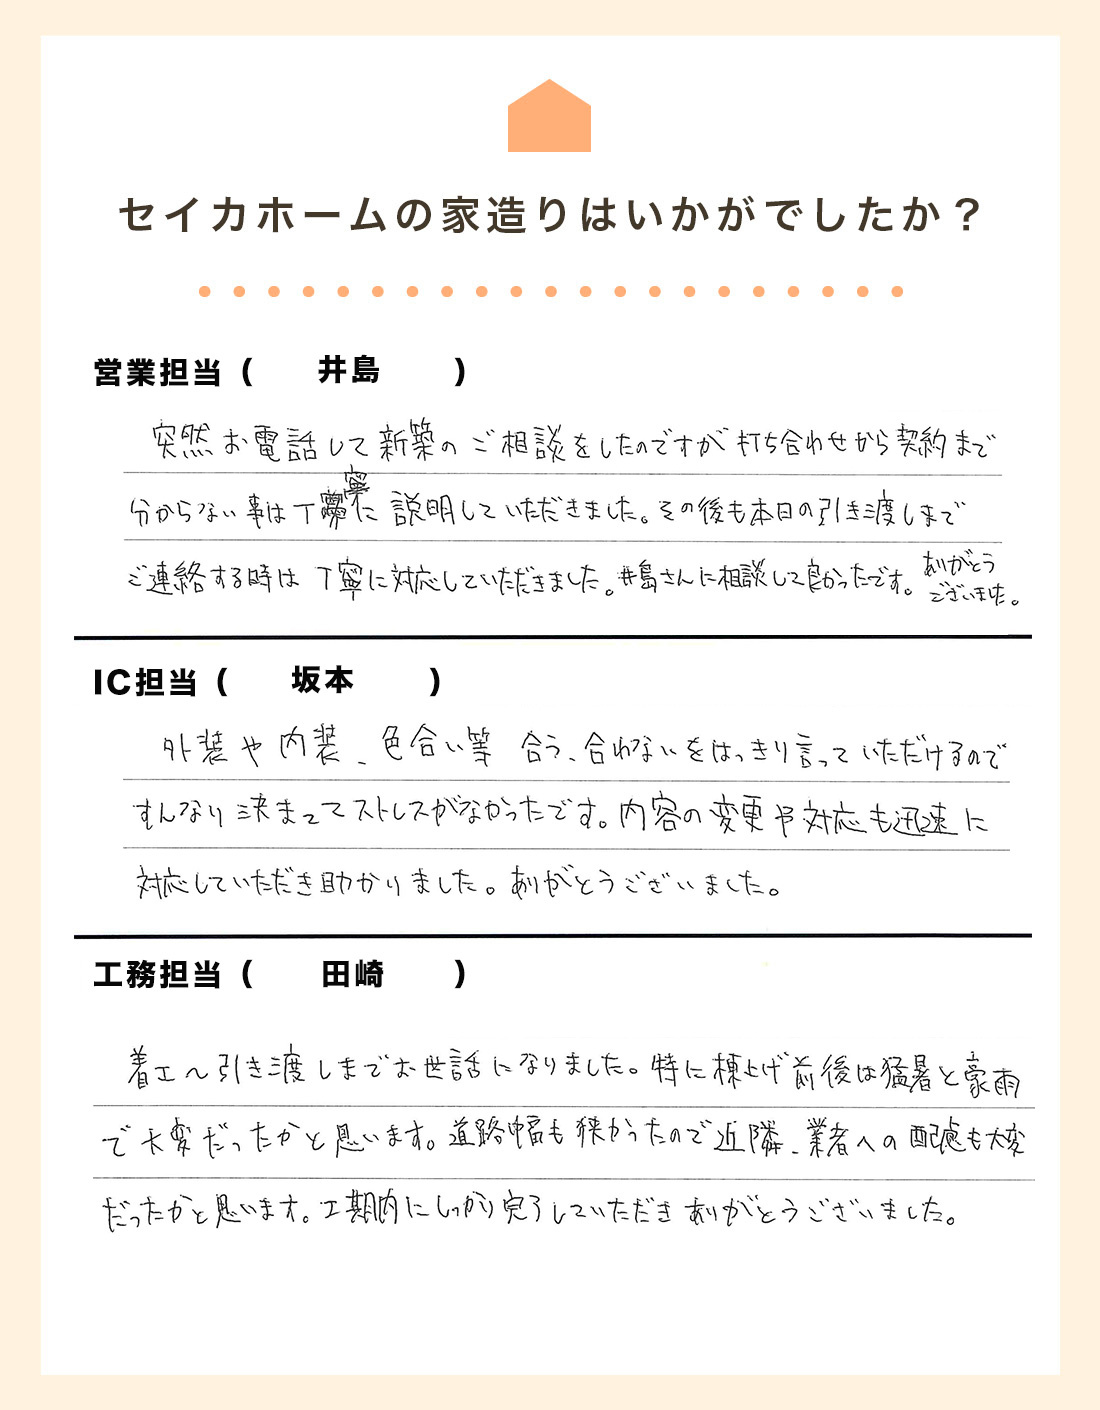 セイカホームの家造りはいかがでしたか？
営業担当 ( 井島 )
突然お電話して新築のご相談をしたのですが打ち合わせから契約まで
分からない事は丁寧に説明していただきました。その後も本日の引き渡しまで
ご連絡する時は丁寧に対応していただきました。井島さんに相談して良かったです。ありがとう
ございました。
IC担当 ( 坂本 )
外装や内装、色合い等 合う、合わないをはっきり言っていただけるので
すんなり決まってストレスがなかったです。内容の変更や対応も迅速に
対応していただき助かりました。ありがとうございました。
工務担当 ( 田崎 )
着工～引き渡しまでお世話になりました。特に棟上げ前後は猛暑と豪雨
で大変だったかと思います。道路幅も狭かったので近隣、業者への配慮も大変
だったかと思います。工期内にしっかり完了していただきありがとうございました。